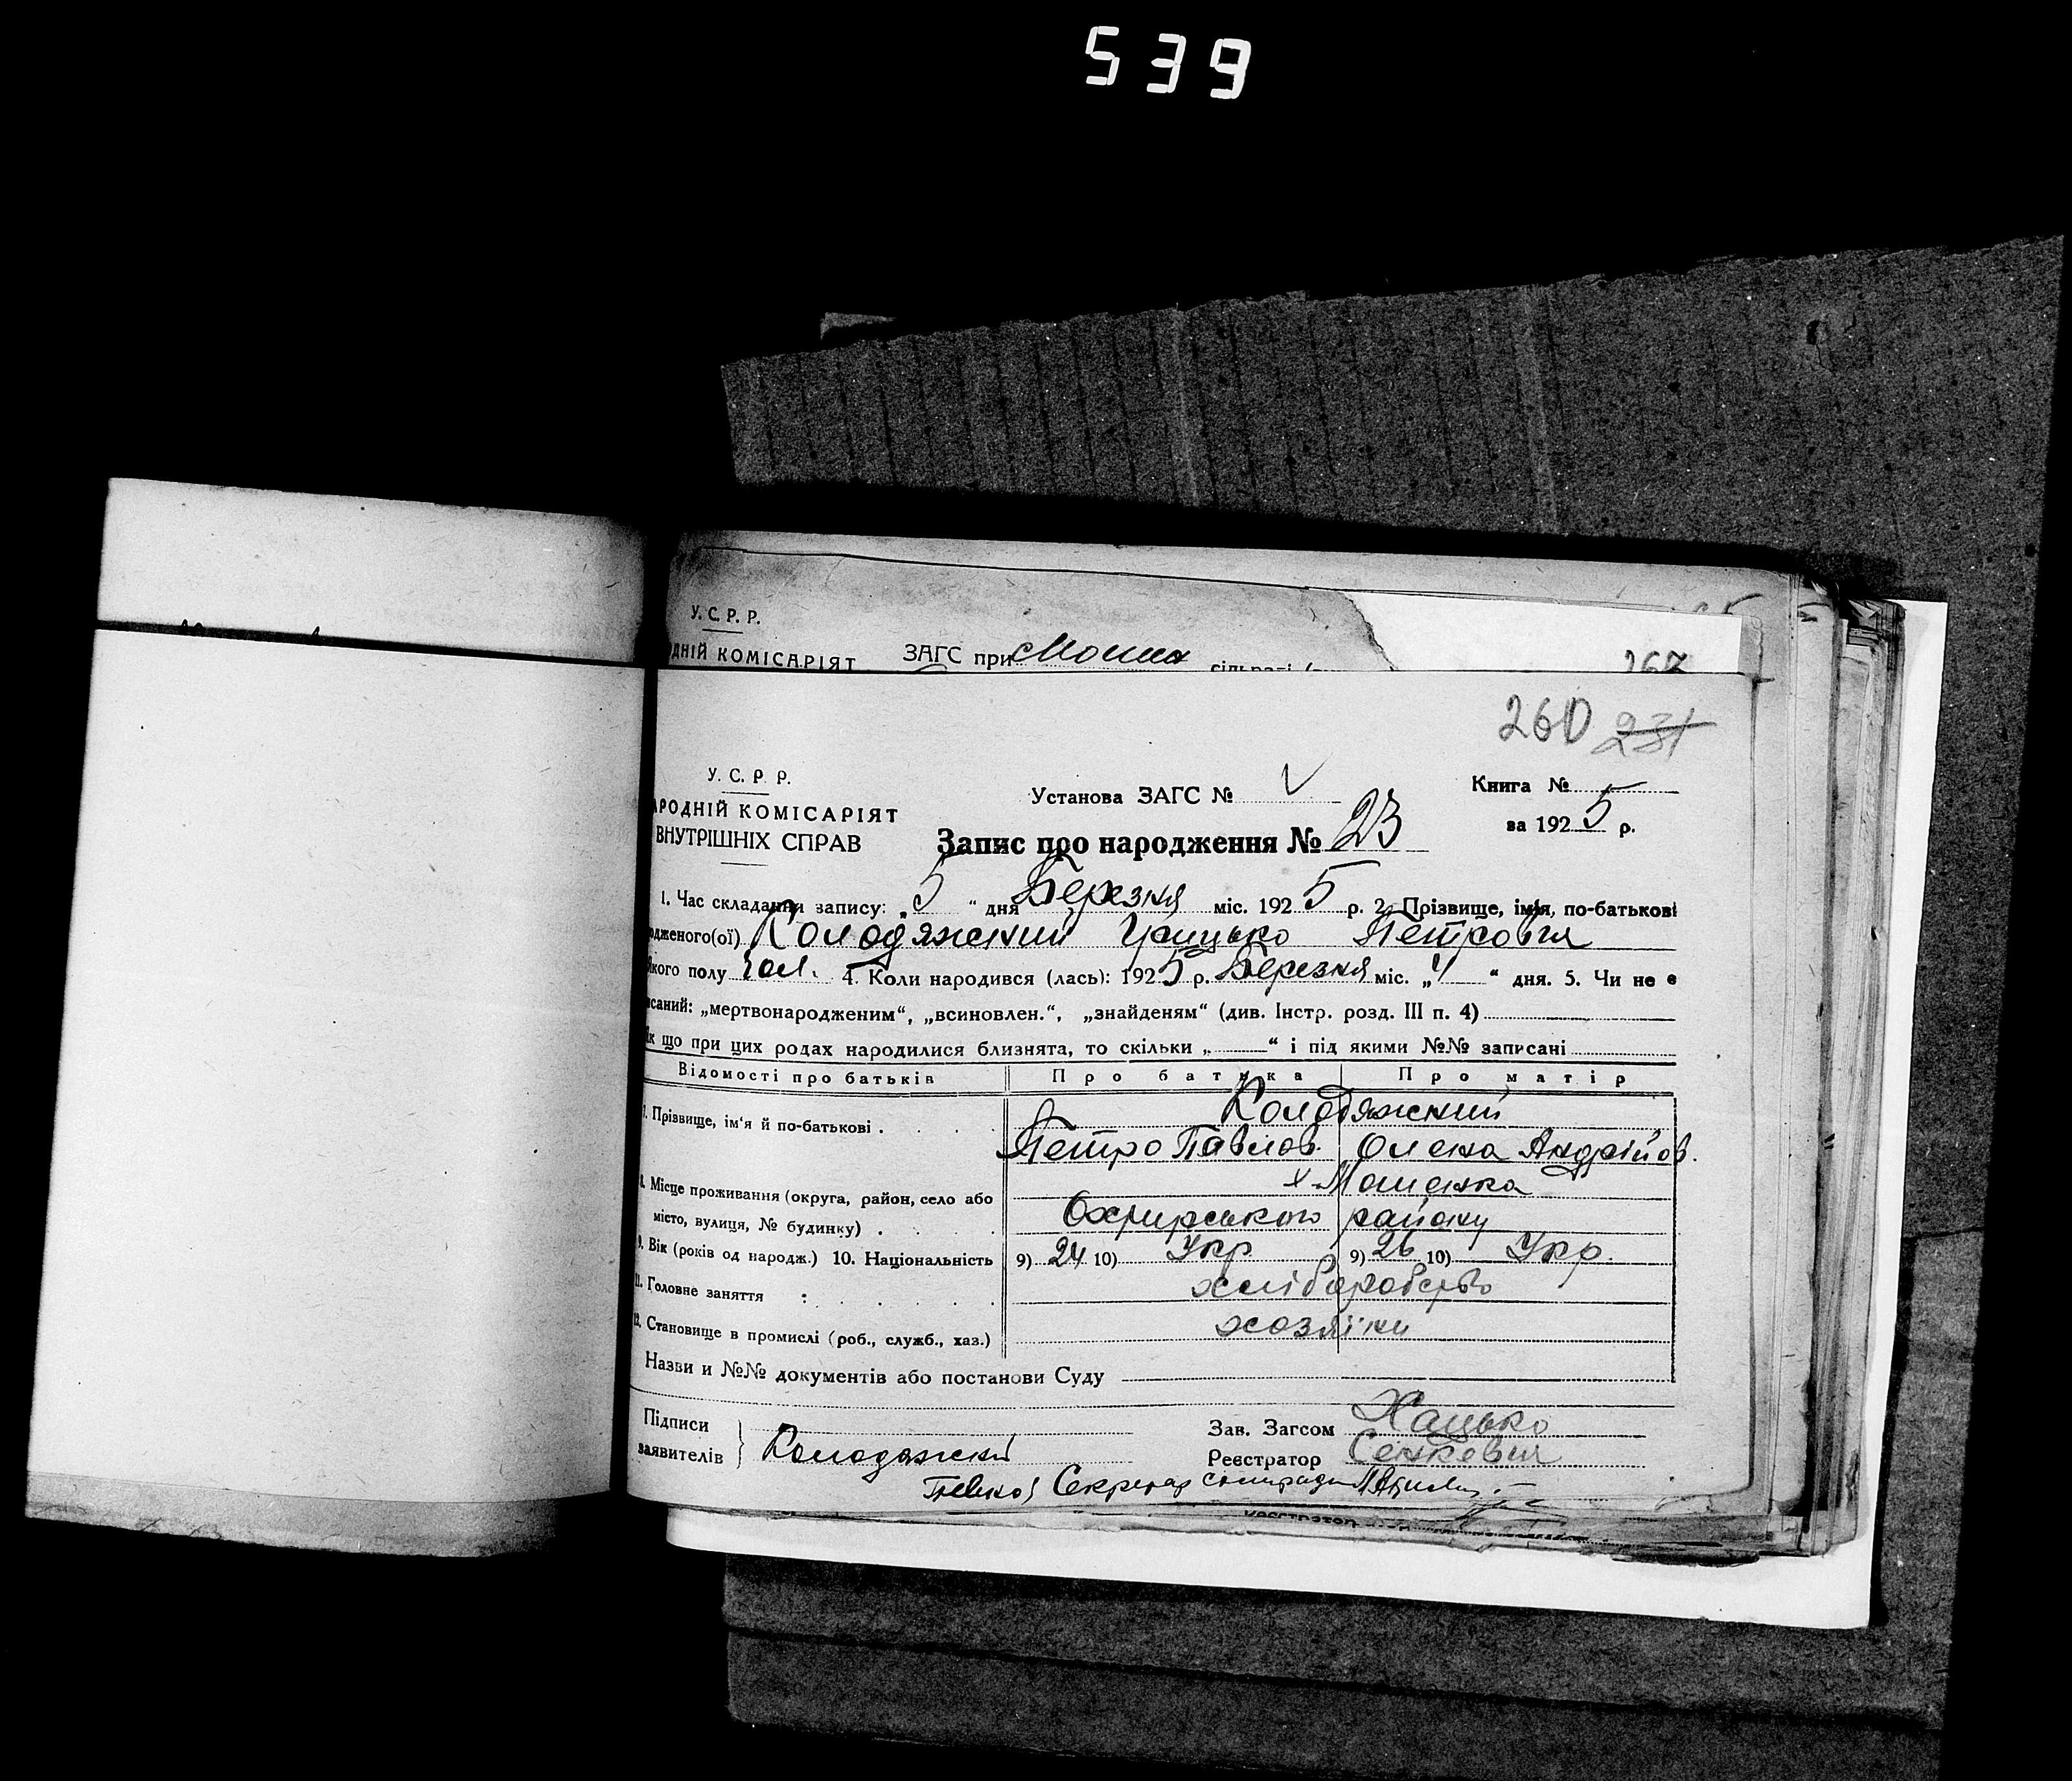 539
У. С. Р. Р.
ДНІЙ КОМІСАРІЯТ ЗАГС при
267
260 231
У. С. Р. Р. Установа ЗАГС № V Книга №
АРОДНІЙ КОМІСАРІЯТ за 1925 р.
ВНУТРІШНІХ СПРАВ Запис про народження № 23
1. Час складання запису: „5“ дня Березня міс. 1925 р. 2. Прізвище, імʼя, по-батькові
одженого(ої) Колодяжкий Грицько Петровіч
якого полу чол. 4. Коли народився (лась): 1925 р. Березня міс. „4“ дня. 5. Чи не є
исаний: „мертвонародженим“, „всиновлен.“, „знайденям“ (див. Інстр. розд. III п. 4)
Як що при цих родах народилися близнята, то скільки „ “ і під якими №№ записані
Відомості про батьків Про батька Про матір
7. Прізвище, ім'я й по-батькові . Колодяжский
Петро Павлов. Олена Андрійов.
8. Місце проживання (округа, район, село або х.
місто, вулиця, № будинку) . Охтирського району
9. Вік (років од народж.) 10. Національність 9) 24 10) Укр 9) 26 10) Укр.
11. Головне заняття : хліборобство
12. Становище в промислі (роб., служб., хаз.) хозяїни
Назви и №№ документів або постанови Суду
Підписи Зав. Загсом Хацько
заявителів } Колодяжский Реєстратор Сенкевич
Секретар сільради
Реєстратор